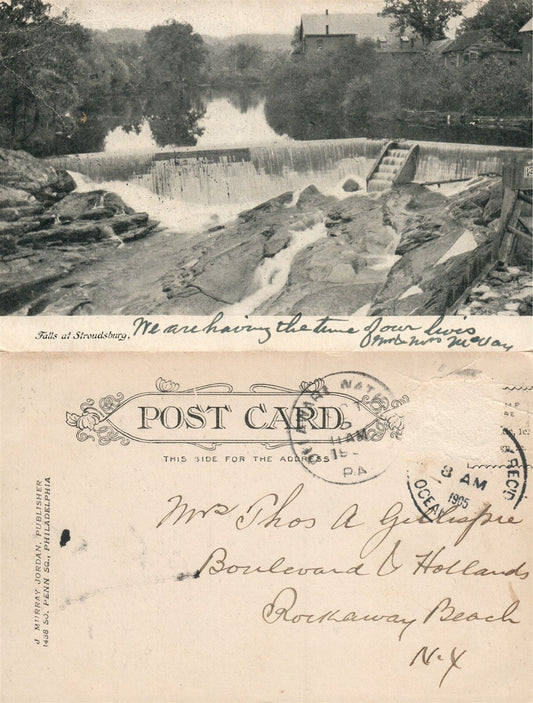 Falls at Stroudsburg. We are having the time of our lives
Mr & Mrs McVay
POST CARD.
THIS SIDE FOR THE ADDRESS
J. MURRAY JORDAN, PUBLISHER
1438 SO. PENN SQ., PHILADELPHIA
NAT
11 AM
PA.
REC'D
8 AM
1905
OCEAN
Mrs Thos A Gillespie
Boulevard & Hollands
Rockaway Beach
N-Y